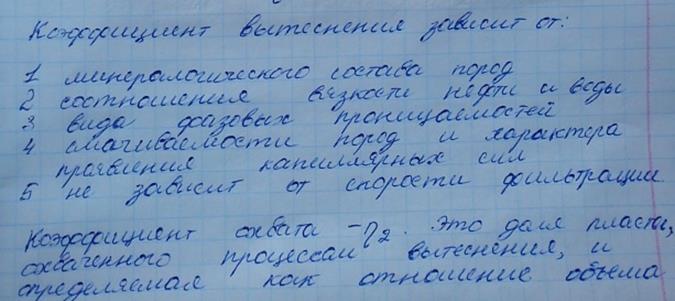 Коэффициент вытеснения зависит от:
1 минералогического состава пород
2 соотношения вязкости нефти и воды
3 вида фазовых проницаемостей
4 смачиваемости пород и характера
проявения капиллярных сил
5 не зависит от скорости фильтрации
Коэффициент охвата - η2. Это доля пласта,
охваченного процессом вытеснения, и
определяемая как отношение объема